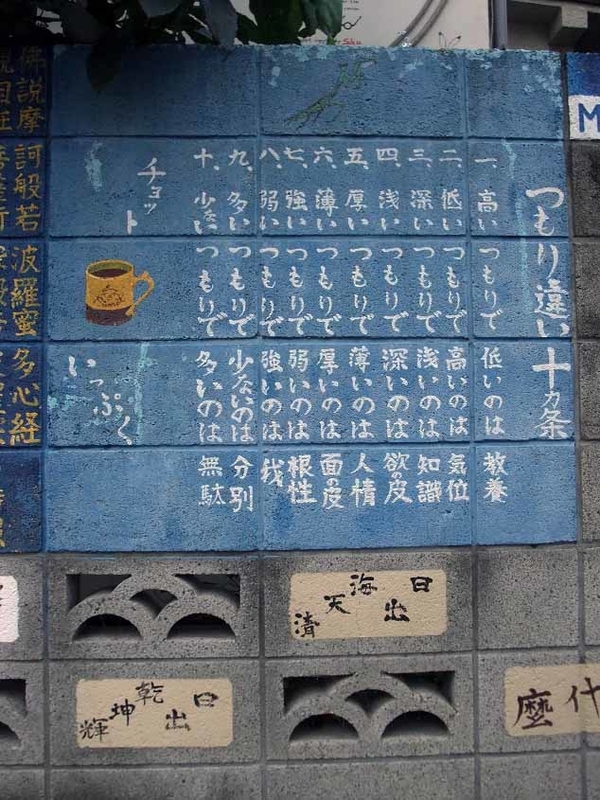 つもり違い十カ条
一、高いつもりで低いのは教養
二、低いつもりで高いのは気位
三、深いつもりで浅いのは知識
四、浅いつもりで深いのは欲の皮
五、厚いつもりで薄いのは人情
六、薄いつもりで厚いのは面の皮
七、強いつもりで弱いのは根性
八、弱いつもりで強いのは我
九、多いつもりで少ないのは分別
十、少ないつもりで多いのは無駄
チョット
いっぷく
佛説摩訶般若波羅蜜多心経
M
日出海天清
日出乾坤輝